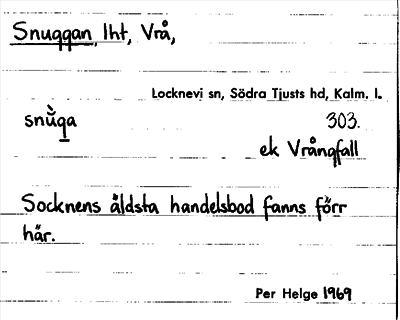 Snuggan, lht, Vrå,
Locknevi sn, Södra Tjusts hd, Kalm. l.
snùga 303.
ek Vrångfall
Socknens äldsta handelsbod fanns förr
här.
Per Helge 1969